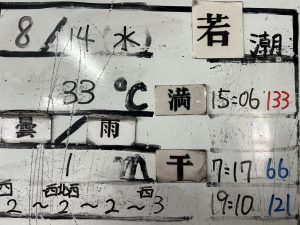 8/14 水 若潮
33 ℃ 満 15:06 133
曇/雨
1 m 干 7:17 66
19:10 121
西 西北西 西
2～2～2～3